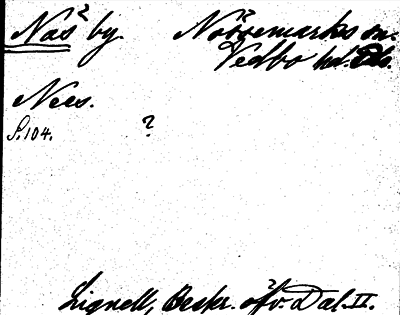 Näs by. Nössemarks sn.
Vedbo hd. Ds.
Nees.
S. 104. ?
Lignell, Beskr. öfv. Dal. II.